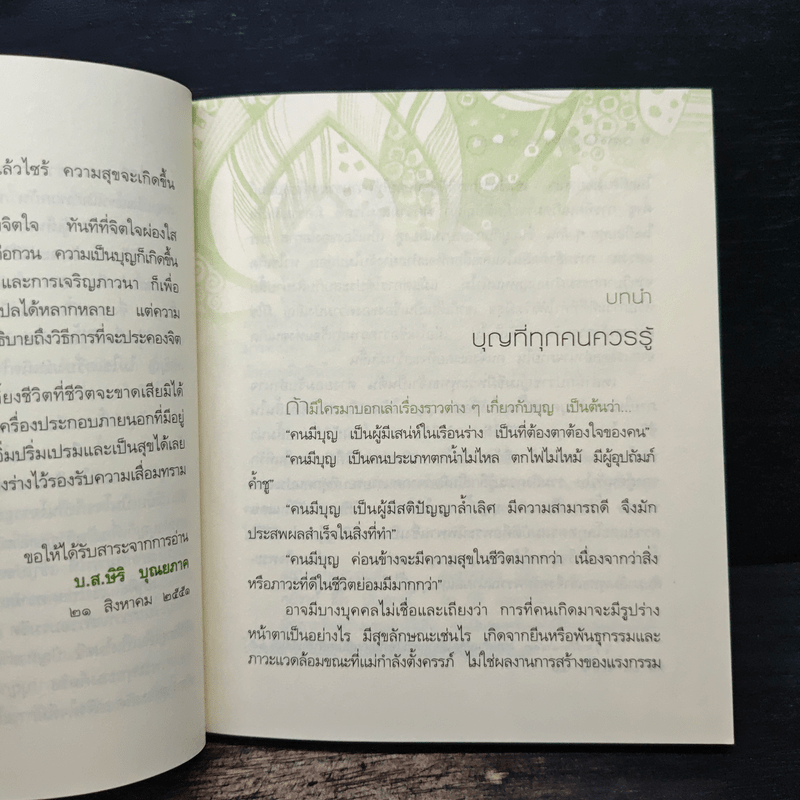 ความสุขจะเกิดขึ้น
ทันทีที่จิตใจผ่องใส
ความเป็นบุญก็เกิดขึ้น
และการเจริญภาวนา ก็เพื่อ
แต่ความ
ถึงวิธีการที่จะประคองจิต
ชีวิตที่ชีวิตจะขาดเสียมิได้
เครื่องประกอบภายนอกที่มีอยู่
และเป็นสุขได้เลย
ไว้รองรับความเสื่อมทราม
ขอให้ได้รับสาระจากการอ่าน
บ.ส.ษิริ บุณยภาค
๒๑ สิงหาคม ๒๕๕๑
บทนำ
บุญที่ทุกคนควรรู้
ถ้ามีใครมาบอกเล่าเรื่องราวต่าง ๆ เกี่ยวกับบุญ เป็นต้นว่า...
“คนมีบุญ เป็นผู้มีเสน่ห์ในเรือนร่าง เป็นที่ต้องตาต้องใจของคน”
“คนมีบุญ เป็นคนประเภทตกน้ำไม่ไหล ตกไฟไม่ไหม้ มีผู้อุปถัมภ์
ค้ำชู”
“คนมีบุญ เป็นผู้มีสติปัญญาล้ำเลิศ มีความสามารถดี จึงมัก
ประสพผลสำเร็จในสิ่งที่ทำ”
“คนมีบุญ ค่อนข้างจะมีความสุขในชีวิตมากกว่า เนื่องจากว่าสิ่ง
หรือภาวะที่ดีในชีวิตย่อมมีมากกว่า”
อาจมีบางบุคคลไม่เชื่อและเถียงว่า การที่คนเกิดมาจะมีรูปร่าง
หน้าตาเป็นอย่างไร มีสุขลักษณะเช่นไร เกิดจากยีนหรือพันธุกรรมและ
ภาวะแวดล้อมขณะที่แม่กำลังตั้งครรภ์ ไม่ใช่ผลงานการสร้างของแรงกรรม